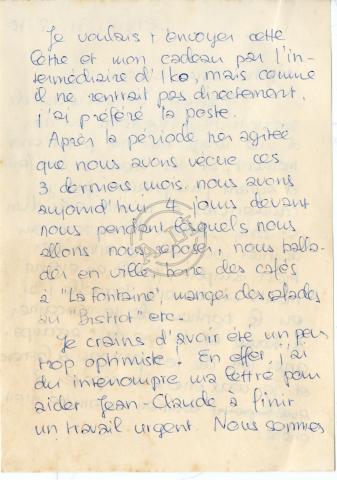 Je voulais t'envoyer cette
lettre et mon cadeau par l'in-
termédiaire d'Iko, mais comme
il ne rentrait pas directement,
j'ai préféré la poste.
Après la période très agitée
que nous avons vécue ces
3 derniers mois, nous avons
aujourd'hui 4 jours devant
nous pendant lesquels nous
allons nous reposer, nous balla-
der en ville, boire des cafés
à "La Fontaine", manger des salades
au "Bistrot" etc.
Je crains d'avoir été un peu
trop optimiste! En effet, j'ai
du interrompre ma lettre pour
aider Jean-Claude à finir
un travail urgent. Nous sommes